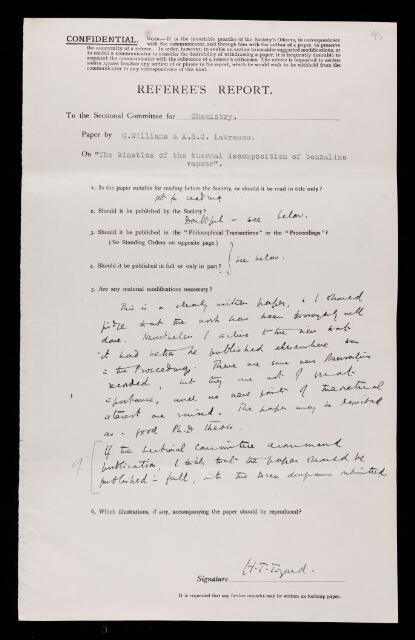 95
CONFIDENTIAL. NOTE.—It is the invariable practice of the Society's Officers, in correspondence
with the communicator, and through him with the author of a paper, to preserve
the anonymity of a referee. In order, however, to enable an author to consider suggested modifications, or
to enable a communicator to consider the desirability of withdrawing a paper, it is frequently desirable to
acquaint the communicator with the substance of a referee's criticisms. The referee is requested to enclose
within square brackets any section of or phrase in his report, which he would wish to be withheld from the
communicator in any correspondence of this kind.
REFEREE'S REPORT.
To the Sectional Committee for Chemistry.
Paper by G.Williams & A.S.C. Lawrence.
On "The kinetics of the thermal decomposition of benzaline
vapour".
1. Is the paper suitable for reading before the Society, or should it be read in title only?
not for reading
2. Should it be published by the Society?
Doubtful – see below.
3. Should it be published in the "Philosophical Transactions" or the "Proceedings"?
(See Standing Orders on opposite page.)
see below.
4. Should it be published in full or only in part?
5. Are any material modifications necessary?
This is a clearly written paper, & I should
judge that the work has been thoroughly well
done. Nevertheless I advise the view that
it had better be published elsewhere than
in the Proceedings. There are some new observations
recorded, but they are not of great
importance, and no new points of theoretical
interest are raised. The paper may be described
as a good Ph.D thesis.
[If the sectional committee recommend
publication, I think that the paper should be
published in full, with the three diagrams submitted
6. Which illustrations, if any, accompanying the paper should be reproduced?
Signature H.T.Tizard.
It is requested that any further remarks may be written on foolscap paper.